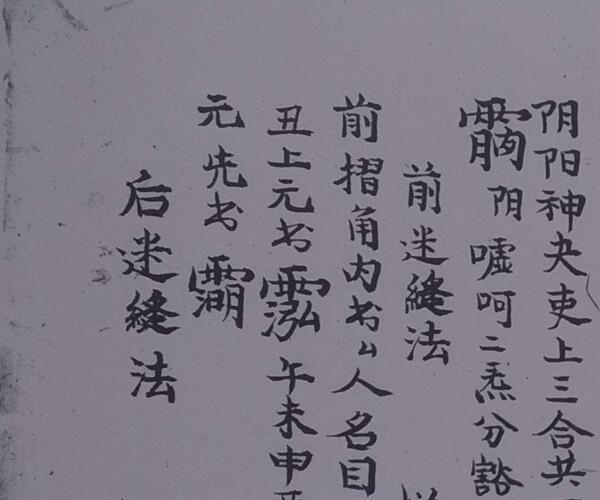 阴阳神夬吏上三合共
阴嘘呵二炁分豁
前迷縫法
前摺角内书厶人名目
丑上元书 午未申
元先书
后迷縫法